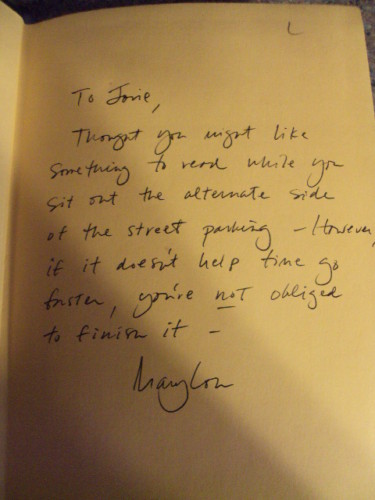 To Josie,
Thought you might like
something to read while you
sit out the alternate side
of the street parking – However,
if it doesn't help time go
faster, you're not obliged
to finish it –
Mary Lou